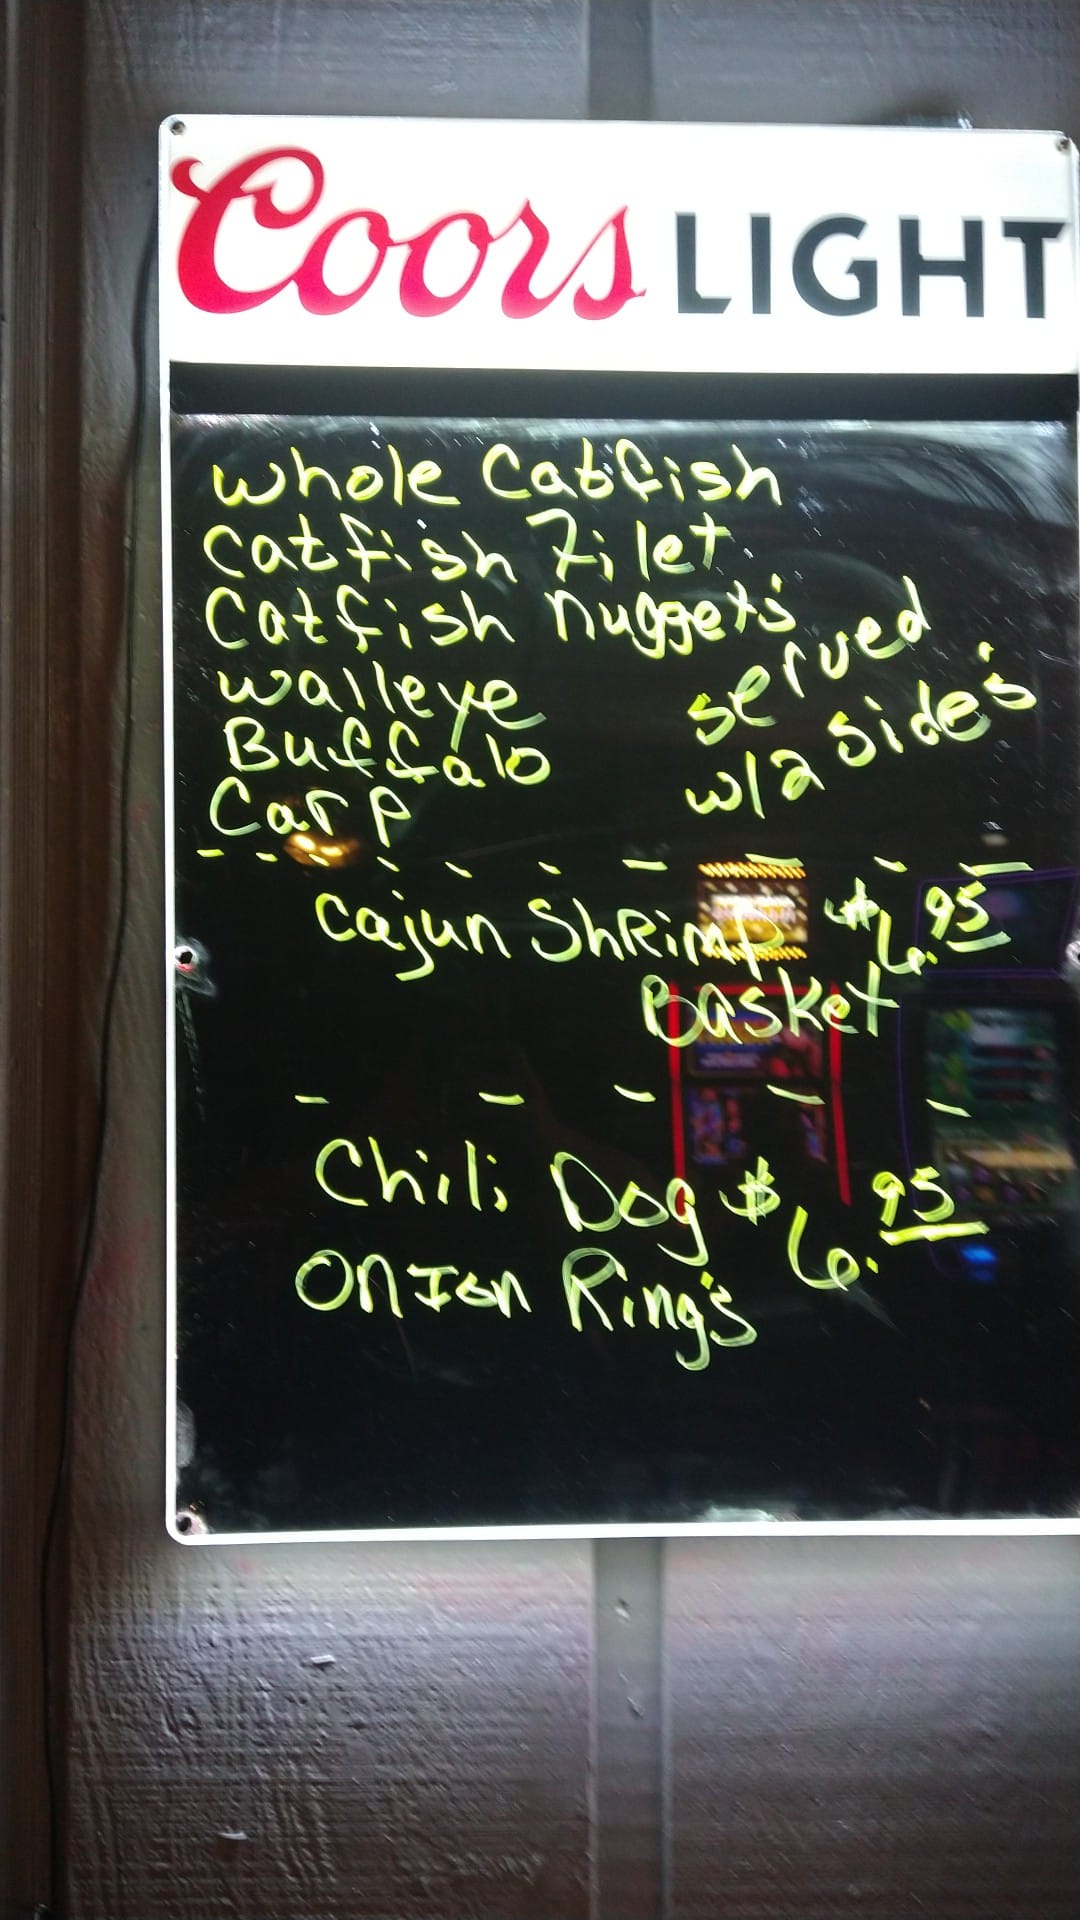 Coors LIGHT
whole Catfish
Catfish Filet
Catfish nugget's
walleye
Buffalo
Carp
served
w/2 side's
Cajun Shrimp $6.95
Basket
Chili Dog $6.95
Onion Ring's